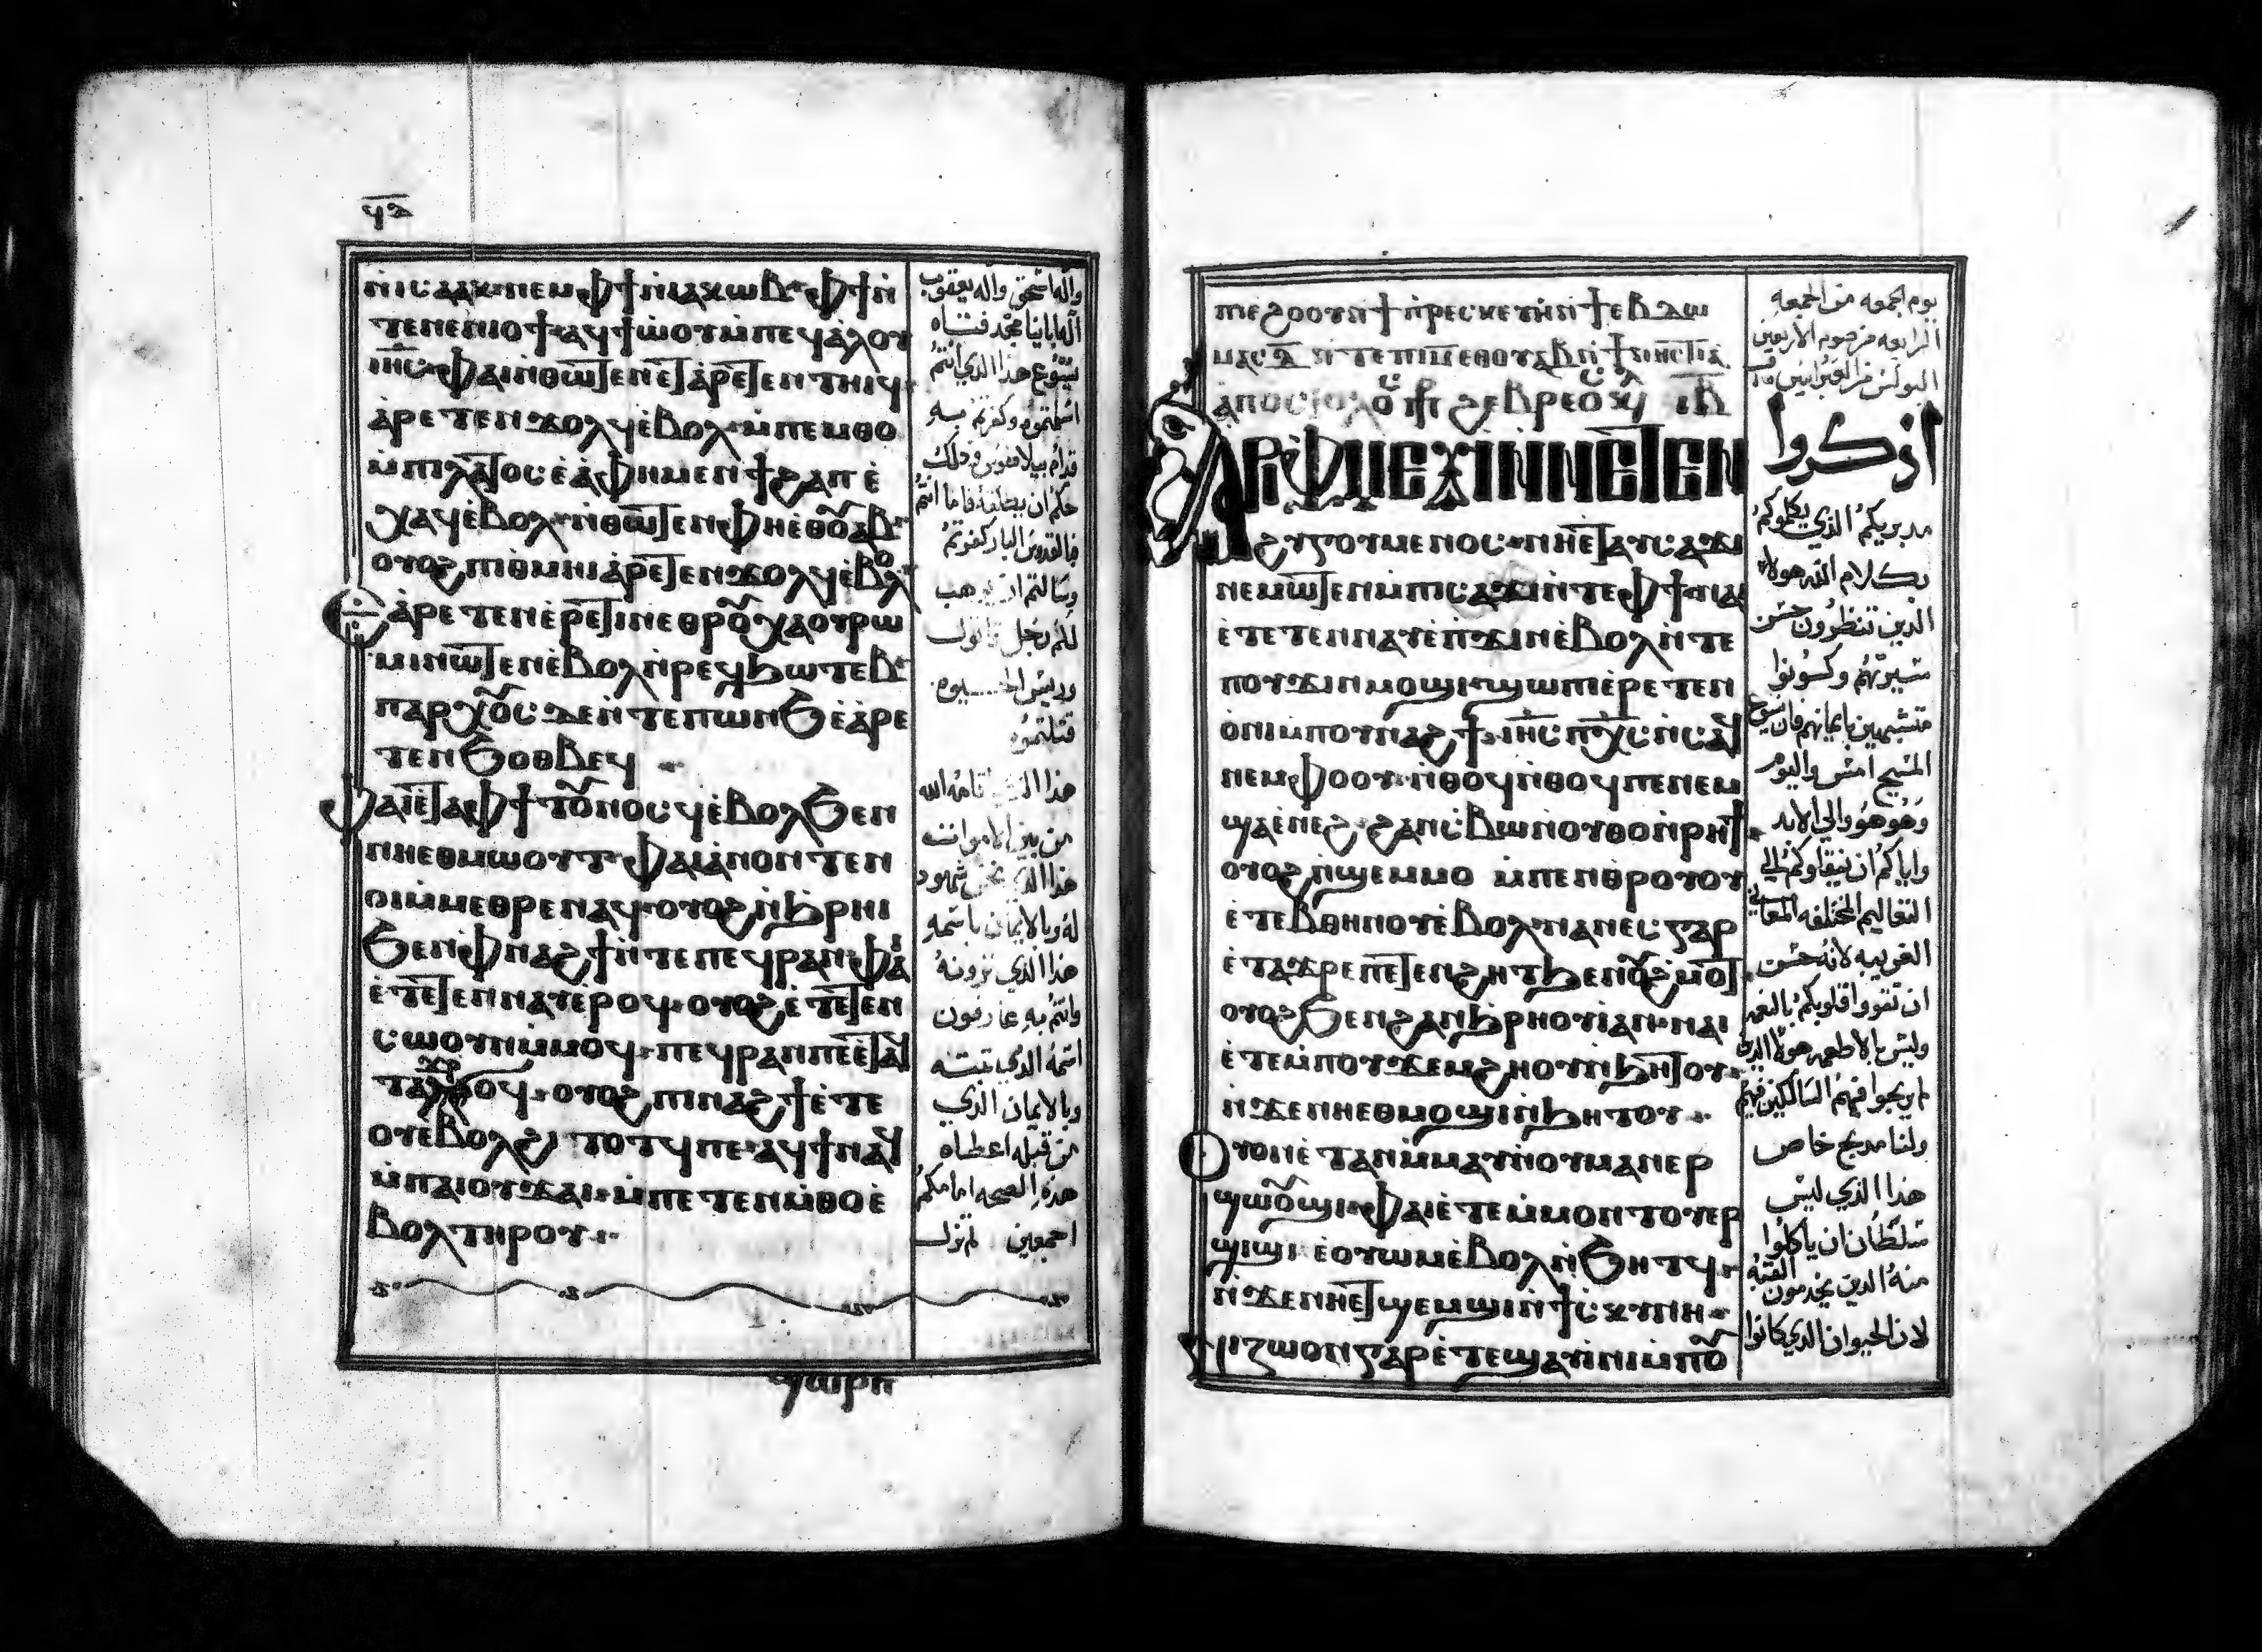 ϥⲇ
ⲛⲓⲥⲁⲁⲕ ⲛⲉⲙ ⲫϯ ⲛⲓⲁⲕⲱⲃ ⲫϯ ⲛ
ⲧⲉ ⲛⲉⲛⲓⲟϯ ⲁϥϯⲱⲟⲩ ⲙⲡⲉϥⲁⲗⲟⲩ
ⲓⲏⲥ ⲫⲁⲓ ⲛⲑⲱⲧⲉⲛ ⲉⲧⲁⲣⲉⲧⲉⲛⲧⲏⲓϥ
ⲁⲣⲉⲧⲉⲛϫⲟⲗϥ ⲉⲃⲟⲗ ⲙⲡⲉⲙⲑⲟ
ⲙⲡⲓⲗⲁⲧⲟⲥ ⲉⲁ ⲫⲏ ⲙⲉⲛ ϯϩⲁⲡ ⲉ
ⲭⲁϥ ⲉⲃⲟⲗ ⲛⲑⲱⲧⲉⲛ ⲫⲏⲉⲑⲟⲩⲁⲃ
ⲟⲩⲟϩ ⲡⲓⲑⲙⲏⲓ ⲁⲣⲉⲧⲉⲛϫⲟⲗϥ ⲉⲃⲟⲗ
ⲁⲣⲉⲧⲉⲛⲉⲣⲉⲧⲓⲛ ⲉⲑⲣⲟⲩⲭⲁ ⲟⲩⲣⲱ
ⲙⲓ ⲛⲱⲧⲉⲛ ⲉⲃⲟⲗ ⲛⲣⲉϥϧⲱⲧⲉⲃ
ⲡⲁⲣⲭⲟⲥ ⲇⲉ ⲛⲧⲉ ⲡⲱⲛϧ ⲉⲁⲣⲉ
ⲧⲉⲛϧⲟⲑⲃⲉϥ
ⲫⲁⲓ ⲉⲧⲁ ⲫϯ ⲧⲟⲩⲛⲟⲥϥ ⲉⲃⲟⲗ ϧⲉⲛ
ⲛⲏⲉⲑⲙⲱⲟⲩⲧ ⲫⲁⲓ ⲁⲛⲟⲛ ⲧⲉⲛ
ⲟⲓ ⲙⲙⲉⲑⲣⲉ ⲛⲁϥ ⲟⲩⲟϩ ⲛϧⲣⲏⲓ
ϧⲉⲛ ⲫⲛⲁϩϯ ⲛⲧⲉ ⲡⲉϥⲣⲁⲛ ⲫⲁⲓ
ⲉⲧⲉⲧⲉⲛⲛⲁⲩ ⲉⲣⲟϥ ⲟⲩⲟϩ ⲉⲧⲉⲧⲉⲛ
ⲥⲱⲟⲩⲛ ⲙⲙⲟϥ ⲡⲉϥⲣⲁⲛ ⲡⲉ ⲉⲧⲁϥ
ⲧⲁϫⲣⲟϥ ⲟⲩⲟϩ ⲡⲓⲛⲁϩϯ ⲉⲧⲉ
ⲟⲩⲉⲃⲟⲗ ϩⲓⲧⲟⲧϥ ⲡⲉ ⲁϥϯ ⲛⲁϥ
ⲙⲡⲁⲓⲟⲩϫⲁⲓ ⲙⲡⲉⲧⲉⲛⲙⲑⲟ ⲉ
ⲃⲟⲗ ⲧⲏⲣⲟⲩ
واله اسحق واله يعقوب
اله ابائنا مجد فتاه
يسوع هذا الذي انتم
اسلمتموه وكفرتم به
قدام بيلاطوس وذلك
حكم ان يطلقه فاما انتم
فالقدوس البار كفرتم
وسالتم ان يوهب
لكم رجل قاتول
وريس الحيوه
قتلتموه
هذا الذي اقامه الله
من بين الاموات
هذا الذي نحن شهود
له وبالايمان باسمه
هذا الذي ترونه
وانتم به عارفون
اسمه الذي تبته
وبالايمان الذي
من قبله اعطاه
هذه الصحه امامكم
اجمعين لم تزل
ⲡⲓⲉϩⲟⲟⲩ ⲛϯⲡⲣⲉⲥⲕⲉⲩⲏ ⲛϯⲉⲃⲇⲱ
ⲙⲁⲥ ⲇ ⲛⲧⲉ ⲡⲓⲙ ⲉⲑⲟⲩⲁⲃ ⲛϯⲛⲏⲥⲧⲓⲁ
ⲁⲡⲟⲥⲧⲟⲗⲟⲥ ϩⲉⲃⲣⲉⲟⲥ ⲓⲃ
ⲁⲣⲓⲫⲙⲉⲩⲓ ⲛⲛⲉⲧⲉⲛ
ϩⲩⲅⲟⲩⲙⲉⲛⲟⲥ ⲛⲏⲉⲧⲁⲩⲥⲁϫⲓ
ⲛⲉⲙⲱⲧⲉⲛ ⲙⲡⲓⲥⲁϫⲓ ⲛⲧⲉ ⲫϯ ⲛⲁⲓ
ⲉⲧⲉⲧⲉⲛⲛⲁⲩ ⲉⲡϫⲓⲛⲉⲃⲟⲗ ⲛⲧⲉ
ⲡⲟⲩϫⲓⲛⲙⲟϣⲓ ϣⲱⲡⲓ ⲉⲣⲉⲧⲉⲛ
ⲟⲛⲓ ⲙⲡⲟⲩⲛⲁϩϯ ⲓⲏⲥ ⲡⲭⲥ ⲛⲥⲁϥ
ⲛⲉⲙ ⲫⲟⲟⲩ ⲛⲑⲟϥ ⲛⲑⲟϥ ⲡⲉ ⲛⲉⲙ
ϣⲁ ⲉⲛⲉϩ ϩⲁⲛⲥⲃⲱ ⲛⲟⲩⲑⲟ ⲛⲣⲏϯ
ⲟⲩⲟϩ ⲛϣⲉⲙⲙⲟ ⲙⲡⲉⲛⲑⲣⲟⲩⲟⲩ
ⲉⲧⲉⲃ ⲑⲏⲛⲟⲩ ⲉⲃⲟⲗ ⲛⲁⲛⲉⲥ ⲅⲁⲣ
ⲉⲧⲁϫⲣⲉ ⲡⲉⲧⲉⲛϩⲏⲧ ϧⲉⲛ ⲟⲩϩⲙⲟⲧ
ⲟⲩⲟϩ ϧⲉⲛ ϩⲁⲛϧⲣⲏⲟⲩⲓ ⲁⲛ ⲛⲁⲓ
ⲉⲧⲉ ⲙⲡⲟⲩϫⲉⲙ ϩⲏⲟⲩ ⲛϧⲏⲧⲟⲩ
ⲛϫⲉ ⲛⲏⲉⲑⲙⲟϣⲓ ⲛϧⲏⲧⲟⲩ
ⲟⲩⲟⲛⲧⲁⲛ ⲙⲙⲁⲩ ⲛⲟⲩⲙⲁⲛⲉⲣ
ϣⲱⲟⲩϣⲓ ⲫⲁⲓ ⲉⲧⲉ ⲙⲙⲟⲛⲧⲟⲩ ⲉⲣ
ϣⲓϣⲓ ⲉⲟⲩⲱⲙ ⲉⲃⲟⲗ ⲛϧⲏⲧϥ
ⲛϫⲉ ⲛⲏⲉⲧϣⲉⲙϣⲓ ⲛϯⲥⲕⲩⲛⲏ
ⲛⲓⲍⲱⲟⲛ ⲅⲁⲣ ⲉⲧⲉϣⲁⲩⲓⲛⲓ ⲙⲡⲟⲩ
يوم الجمعه من الجمعه
الرابعه من صوم الاربعين
البولس من العبرانيين
اذكروا
مدبريكم الذي كلموكم
بكلام الله هولاء
الذين تنظرون حسن
سيرتهم وكونوا
متشبهين بايمانهم فان يسوع
المسيح امس واليوم
وهو هو والي الابد
واياكم ان تنقاوكم الي
التعاليم المختلفه المعاني
الغريبه لانه حسن
ان تقووا قلوبكم بالنعمه
وليس بالاطعمه هولا الذين
لم يربحوا فيهم السالكين فيهم
ولنا مدبح خاص
هذا الذي ليس
سلطان ان ياكلوا
منه الذين يخدمون القبه
لان الحيوان الذي كانوا